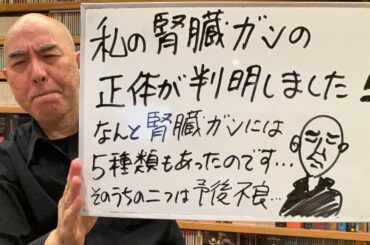 私の腎臓ガンの
正体が判明しました!
なんと腎臓ガンには
5種類もあったのです…
そのうちの二つは予後不良…